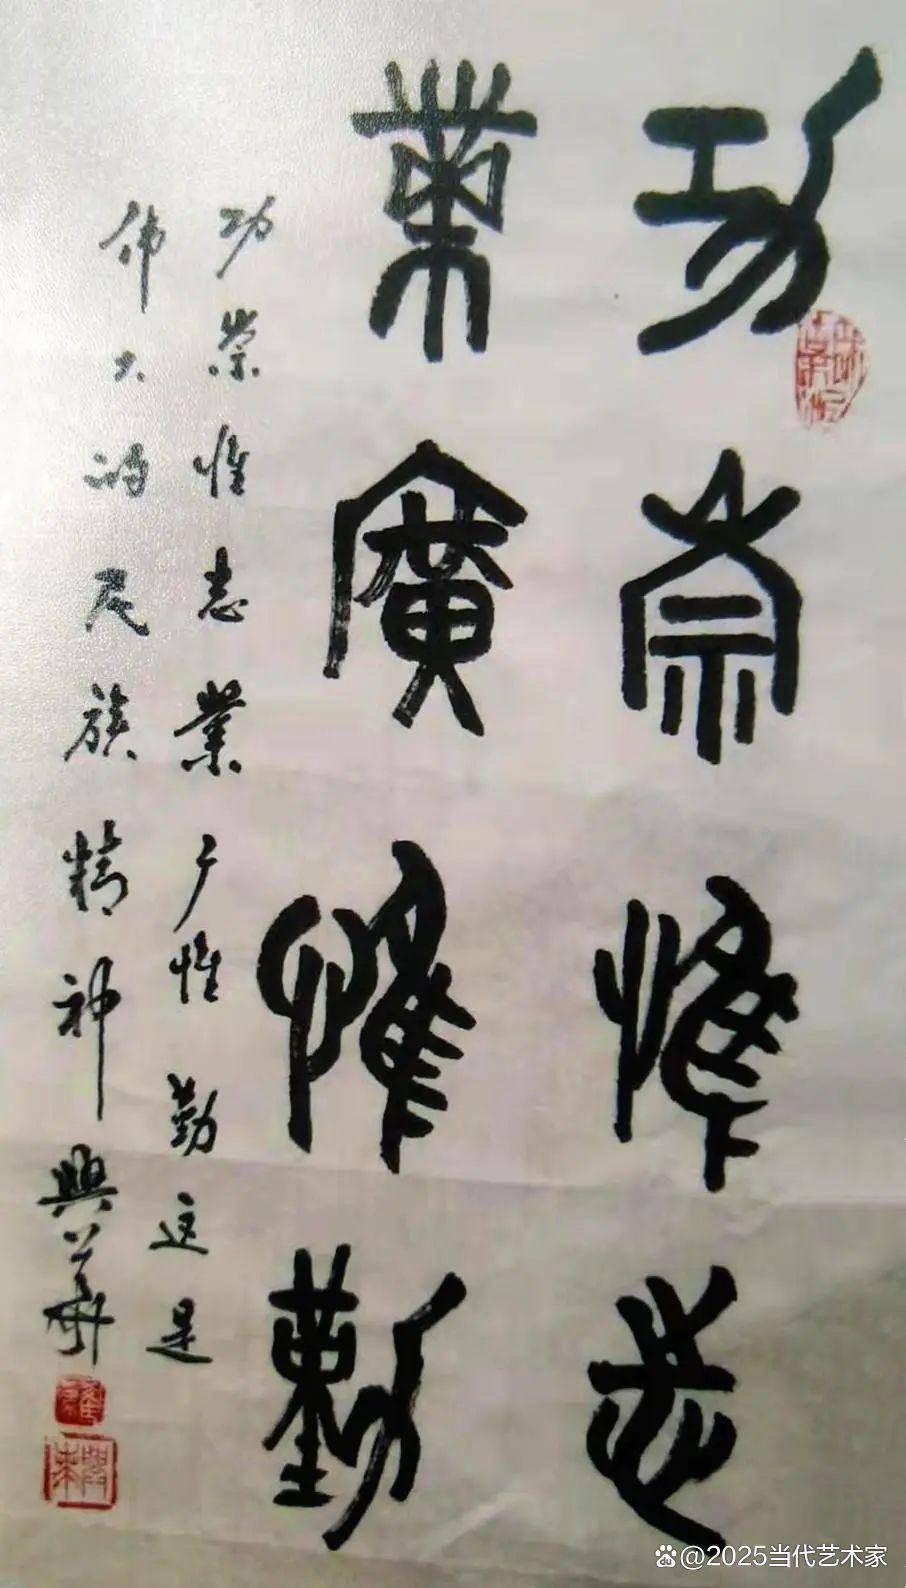 功崇惟志
業廣惟勤
功崇惟志業广惟勤这是
伟大的民族精神興華
@2025当代艺术家